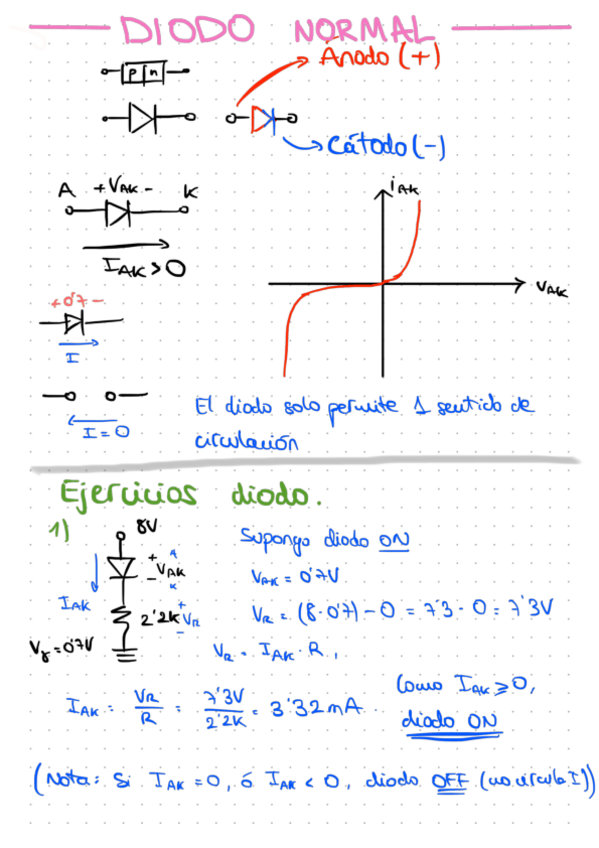 DIODO NORMAL
Ánodo (+)
p n
Cátodo (-)
A + VAK - K
iAK
IAK > 0
VAK
+ 0'7 -
I
I = 0
El diodo solo permite 1 sentido de
circulación
Ejercicios diodo.
1)
8V
Supongo diodo ON
+ A
VAK
- K
VAK = 0'7V
IAK
2'2K
+
VR
-
VR = (8-0'7) - 0 = 7'3 - 0 = 7'3V
Vγ = 0'7V
VR = IAK · R,
IAK = VR/R = 7'3V/2'2K = 3'32mA.
Como IAK ≥ 0,
diodo ON
(Nota: Si IAK = 0, ó IAK < 0, diodo OFF (no circula I))